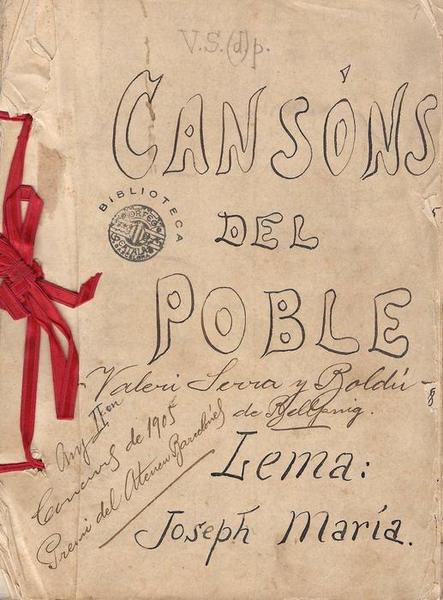 V.S.(d)p.
CANSÓNS
BIBLIOTECA
DEL
POBLE
Valeri Serra y Boldú
de Bellpuig.
Any II.on
Concurs de 1905
Premi del Ateneu Barcelonés
Lema:
Joseph María.